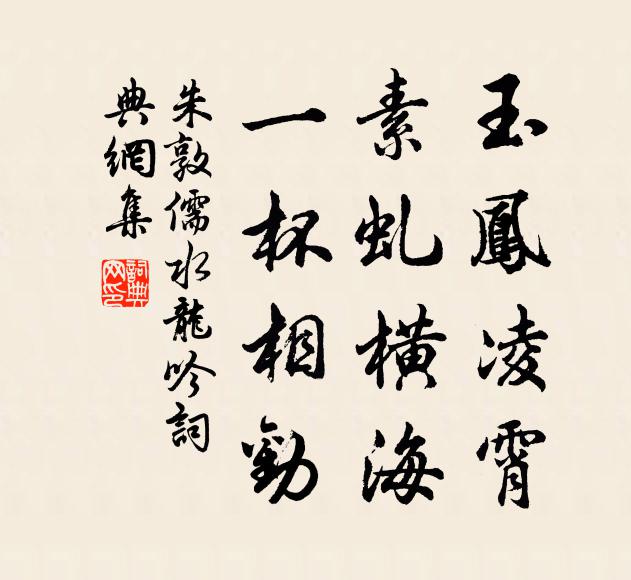 玉鳳凌霄
素虬橫海
一杯相勸
朱敦儒水龍吟詞
典網集
詞典網印